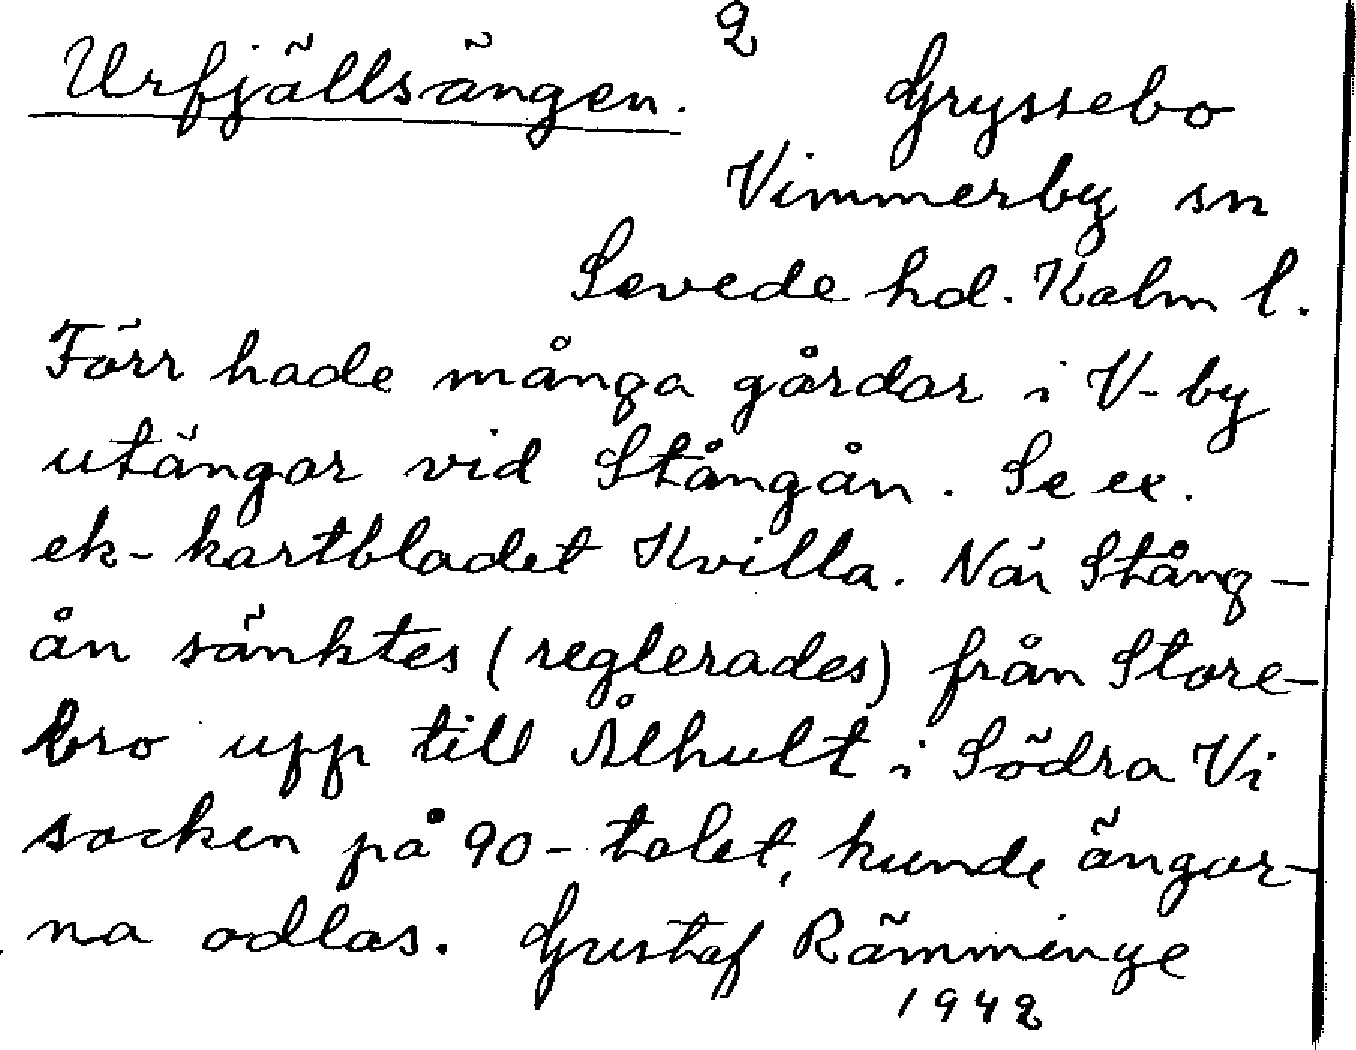 2
Urfjällsängen. Gryssebo
Vimmerby sn
Sevede hd. Kalm l.
Förr hade många gårdar i V-by
utängar vid Stångån. Se ex.
ek-kartbladet Kvilla. När Stång-
ån sänktes (reglerades) från Store-
bro upp till Ålhult i Södra Vi
socken på 90-talet, kunde ängar-
na odlas. Gustaf Rämminge
1942